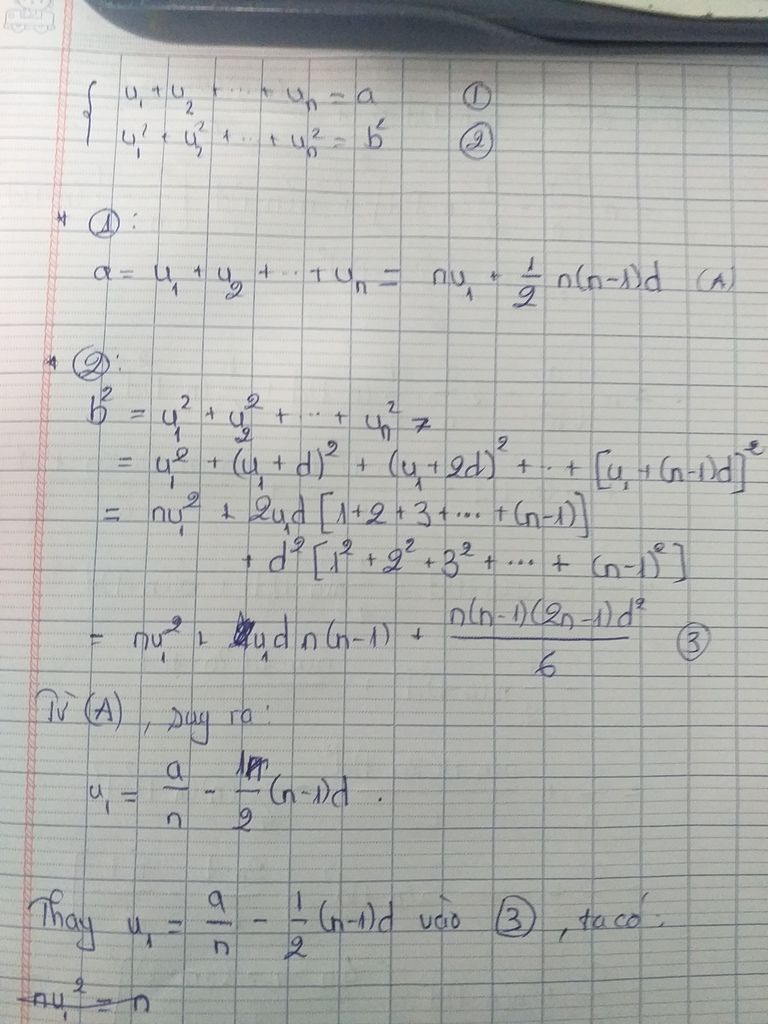 { u₁ + u₂ + ... + uₙ = a ①
u₁² + u₂² + ... + uₙ² = b² ②
* ①:
a = u₁ + u₂ + ... + uₙ = nu₁ + 1/2 n(n-1)d (A)
* ②:
b² = u₁² + u₂² + ... + uₙ²
= u₁² + (u₁ + d)² + (u₁ + 2d)² + ... + [u₁ + (n-1)d]²
= nu₁² + 2u₁d [1 + 2 + 3 + ... + (n-1)]
+ d² [1² + 2² + 3² + ... + (n-1)²]
= nu₁² + u₁d n(n-1) + n(n-1)(2n-1)d²/6 ③
Từ (A), suy ra:
u₁ = a/n - 1/2 (n-1)d.
Thay u₁ = a/n - 1/2 (n-1)d vào ③, ta có:
nu₁² = n